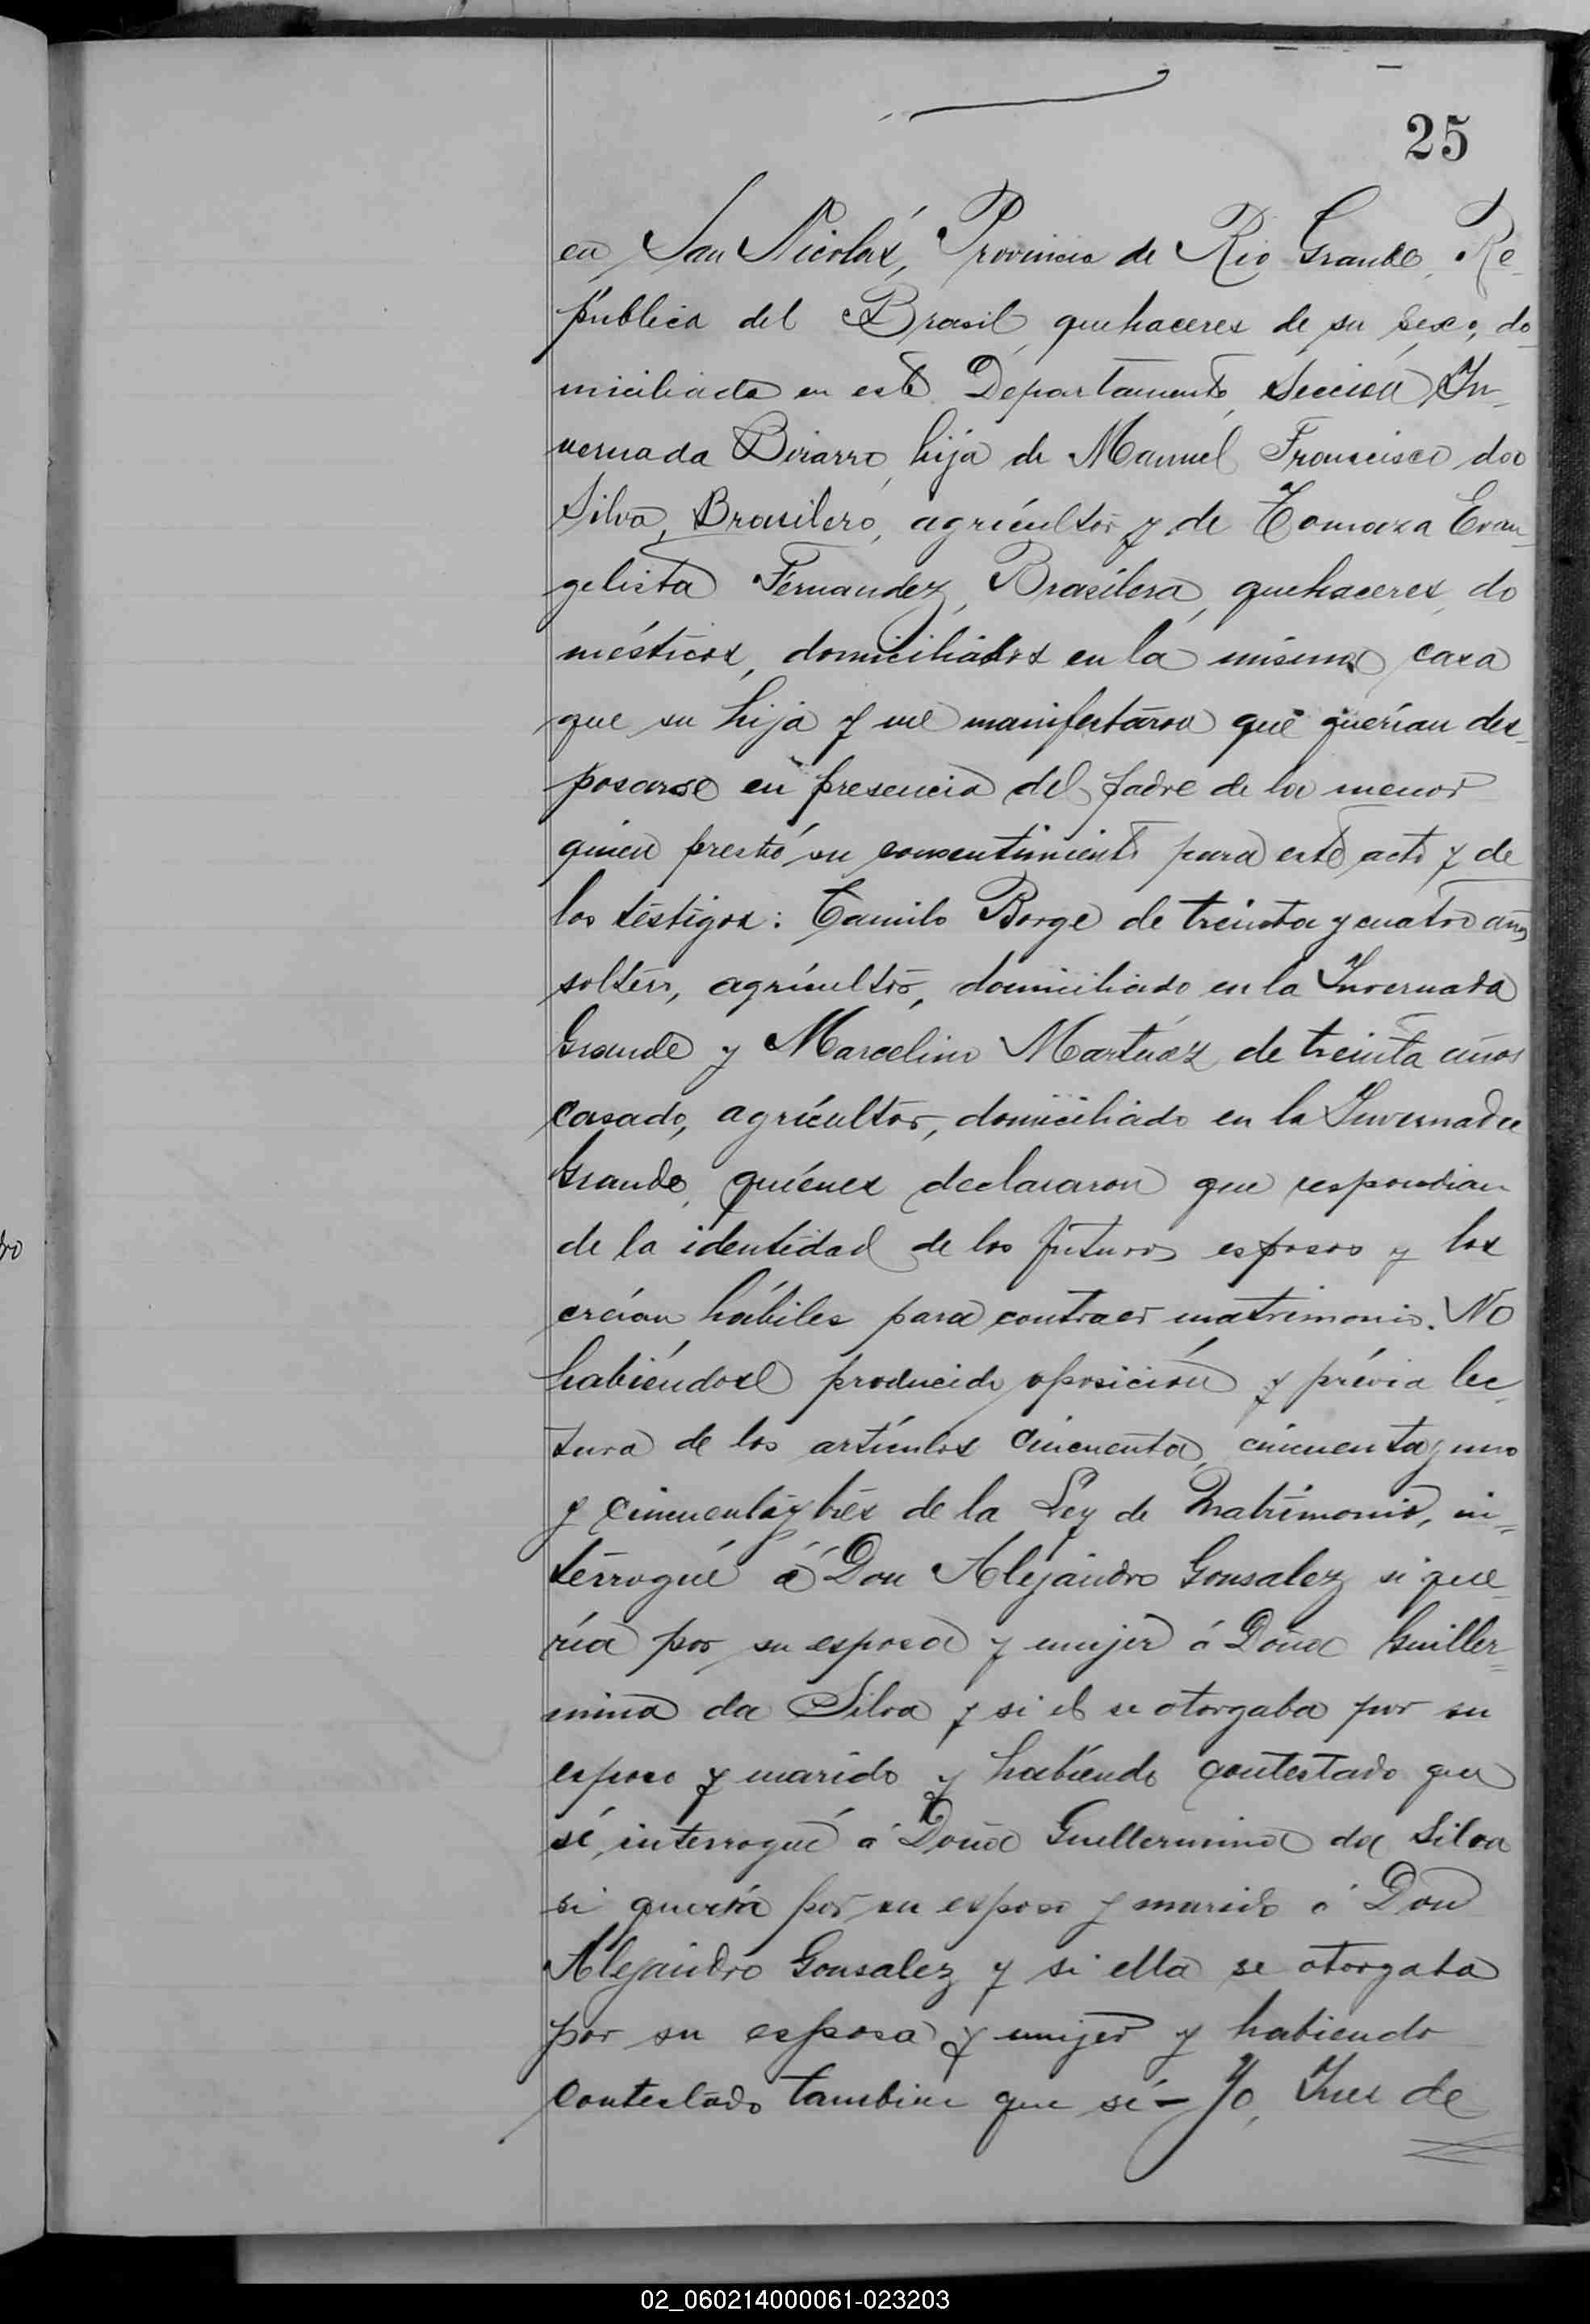 25
en San Nicolás, Provincia de Rio Grande, Re-
pública del Brasil, quehaceres de su sexo, do-
miciliada en este Departamento, Sección In-
vernada Bizarro, hija de Manuel Francisco da
Silva, Brasilero, agricultor y de Tomaza Evan-
gelista Fernandez, Brasilera, quehaceres do
mésticos, domiciliados en la misma casa
que su hija y me manifestaron que querían des-
posarse en presencia del padre de la menor
quien prestó su consentimiento para este acto y de
los testigos: Camilo Borge de treinta y cuatro años
soltero, agricultor, domiciliado en la Invernada
Grande y Marcelino Martinez de treinta años
casado, agricultor, domiciliado en la Invernada
Grande, quiénes declararon que respondian
de la identidad de los futuros esposos y los
creían hábiles para contraer matrimonio. No
habiéndose producido oposición y prévia lec-
tura de los artículos cincuenta, cincuenta y uno
y cincuenta y tres de la Ley de Matrimonio, in-
terrogué á Don Alejandro Gonsalez si que-
ría por su esposa y mujer á Doña Guiller-
mina da Silva y si él se otorgaba por su
esposo y marido y habiendo contestado que
sí, interrogué á Doña Guellermina da Silva
si quería por su esposo y marido á Don
Alejandro Gonsalez y si ella se otorgaba
por su esposa y mujer y habiendo
contestado tambien que sí - Yo, Juez de
02_060214000061-023203